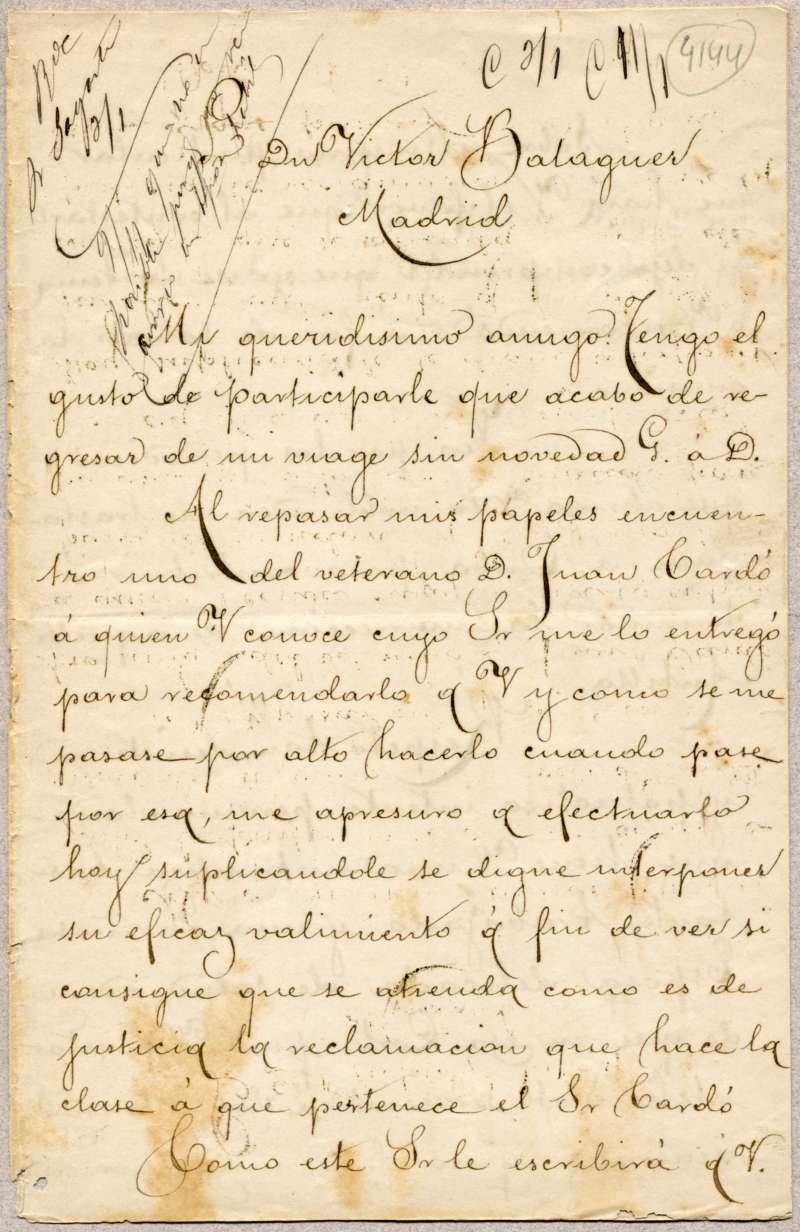 C 3/1 C 11/1 4144
Rec
Sr Sagasta
3/1
9/1
por
Dn Victor Balaguer
Madrid
Mi queridisimo amigo: Tengo el
gusto de participarle que acabo de re-
gresar de mi viage sin novedad G. á D.
Al repasar mis papeles encuen-
tro uno del veterano D. Juan Cardó
á quien V conoce cuyo Sr me lo entregó
para recomendarlo á V y como se me
pasase por alto hacerlo cuando pase
por esa, me apresuro á efectuarlo
hoy suplicandole se digne interponer
su eficaz valimiento á fin de ver si
consigue que se atienda como es de
justicia la reclamacion que hace la
clase á que pertenece el Sr Cardó
Como este Sr le escribirá á V.